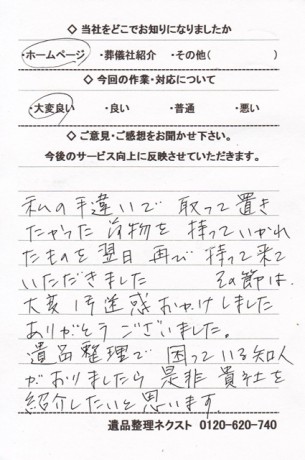 ◇ 当社をどこでお知りになりましたか
・ホームページ ・葬儀社紹介 ・その他( )
◇ 今回の作業・対応について
・大変良い ・良い ・普通 ・悪い
◇ ご意見・ご感想をお聞かせ下さい。
今後のサービス向上に反映させていただきます。
私の手違いで 取って置き
たかった 荷物を 持っていかれ
たものを 翌日 再び 持って来て
いただきました その節は
大変 ご迷惑 おかけしました
ありがとう ございました。
遺品整理で 困っている知人
がおりましたら 是非 貴社を
紹介したいと思います。
遺品整理ネクスト 0120-620-740